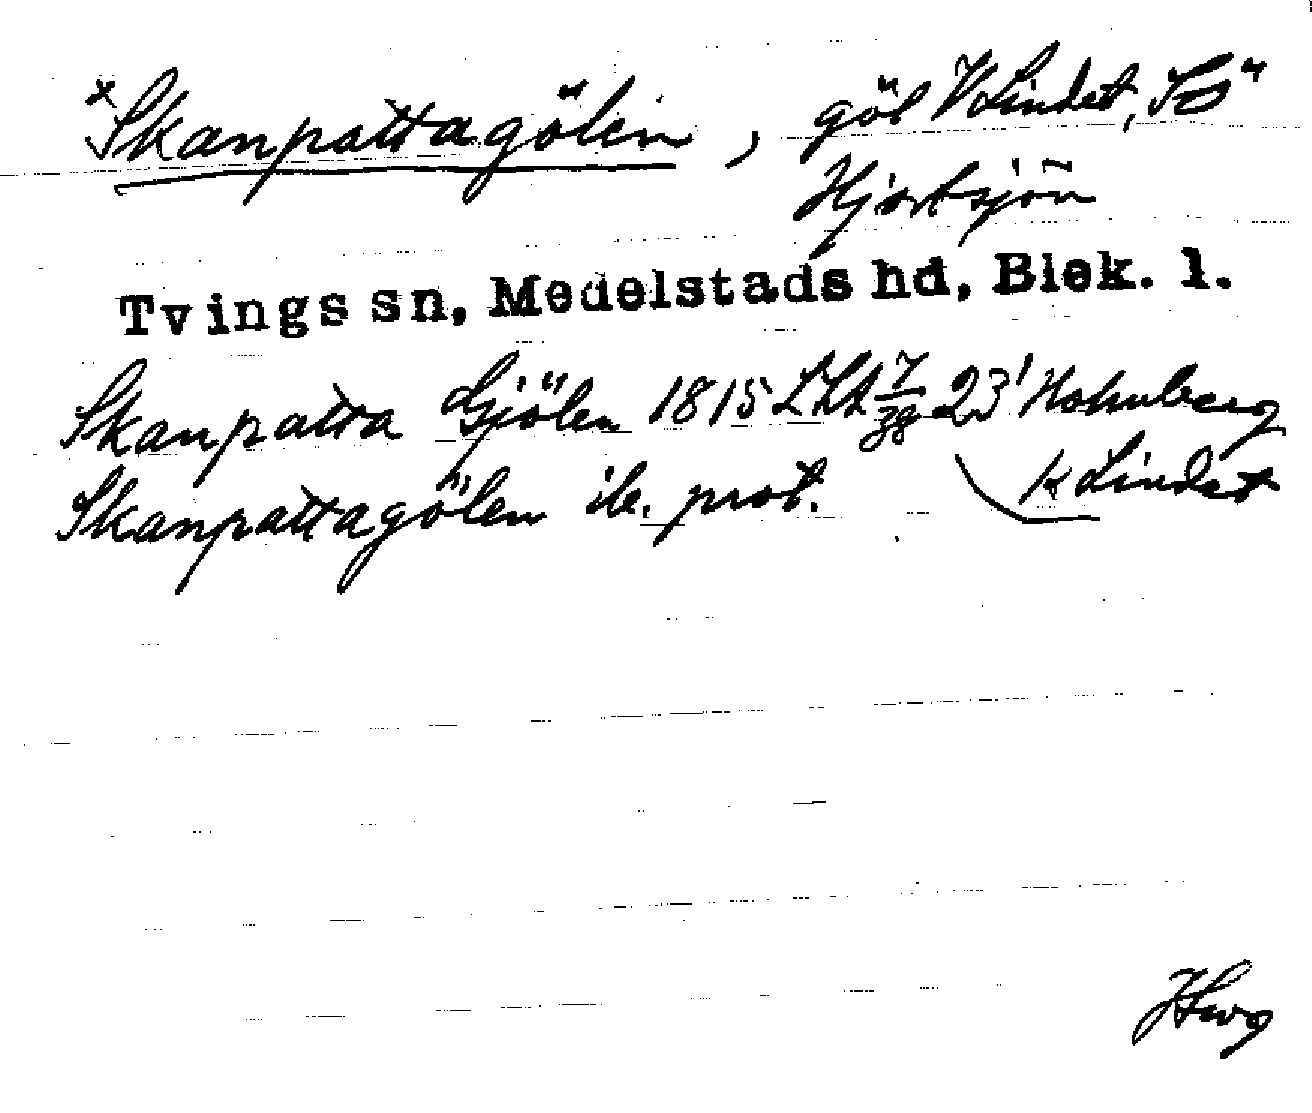 *Skanpattagölen, göl V Lindet, SO
Hjortsjön
Tvings sn, Medelstads hd, Blek. l.
Skanpatta Gjölen 1815 LSA 23' Holmberg
Skanpattagölen ib. prot. k Lindet